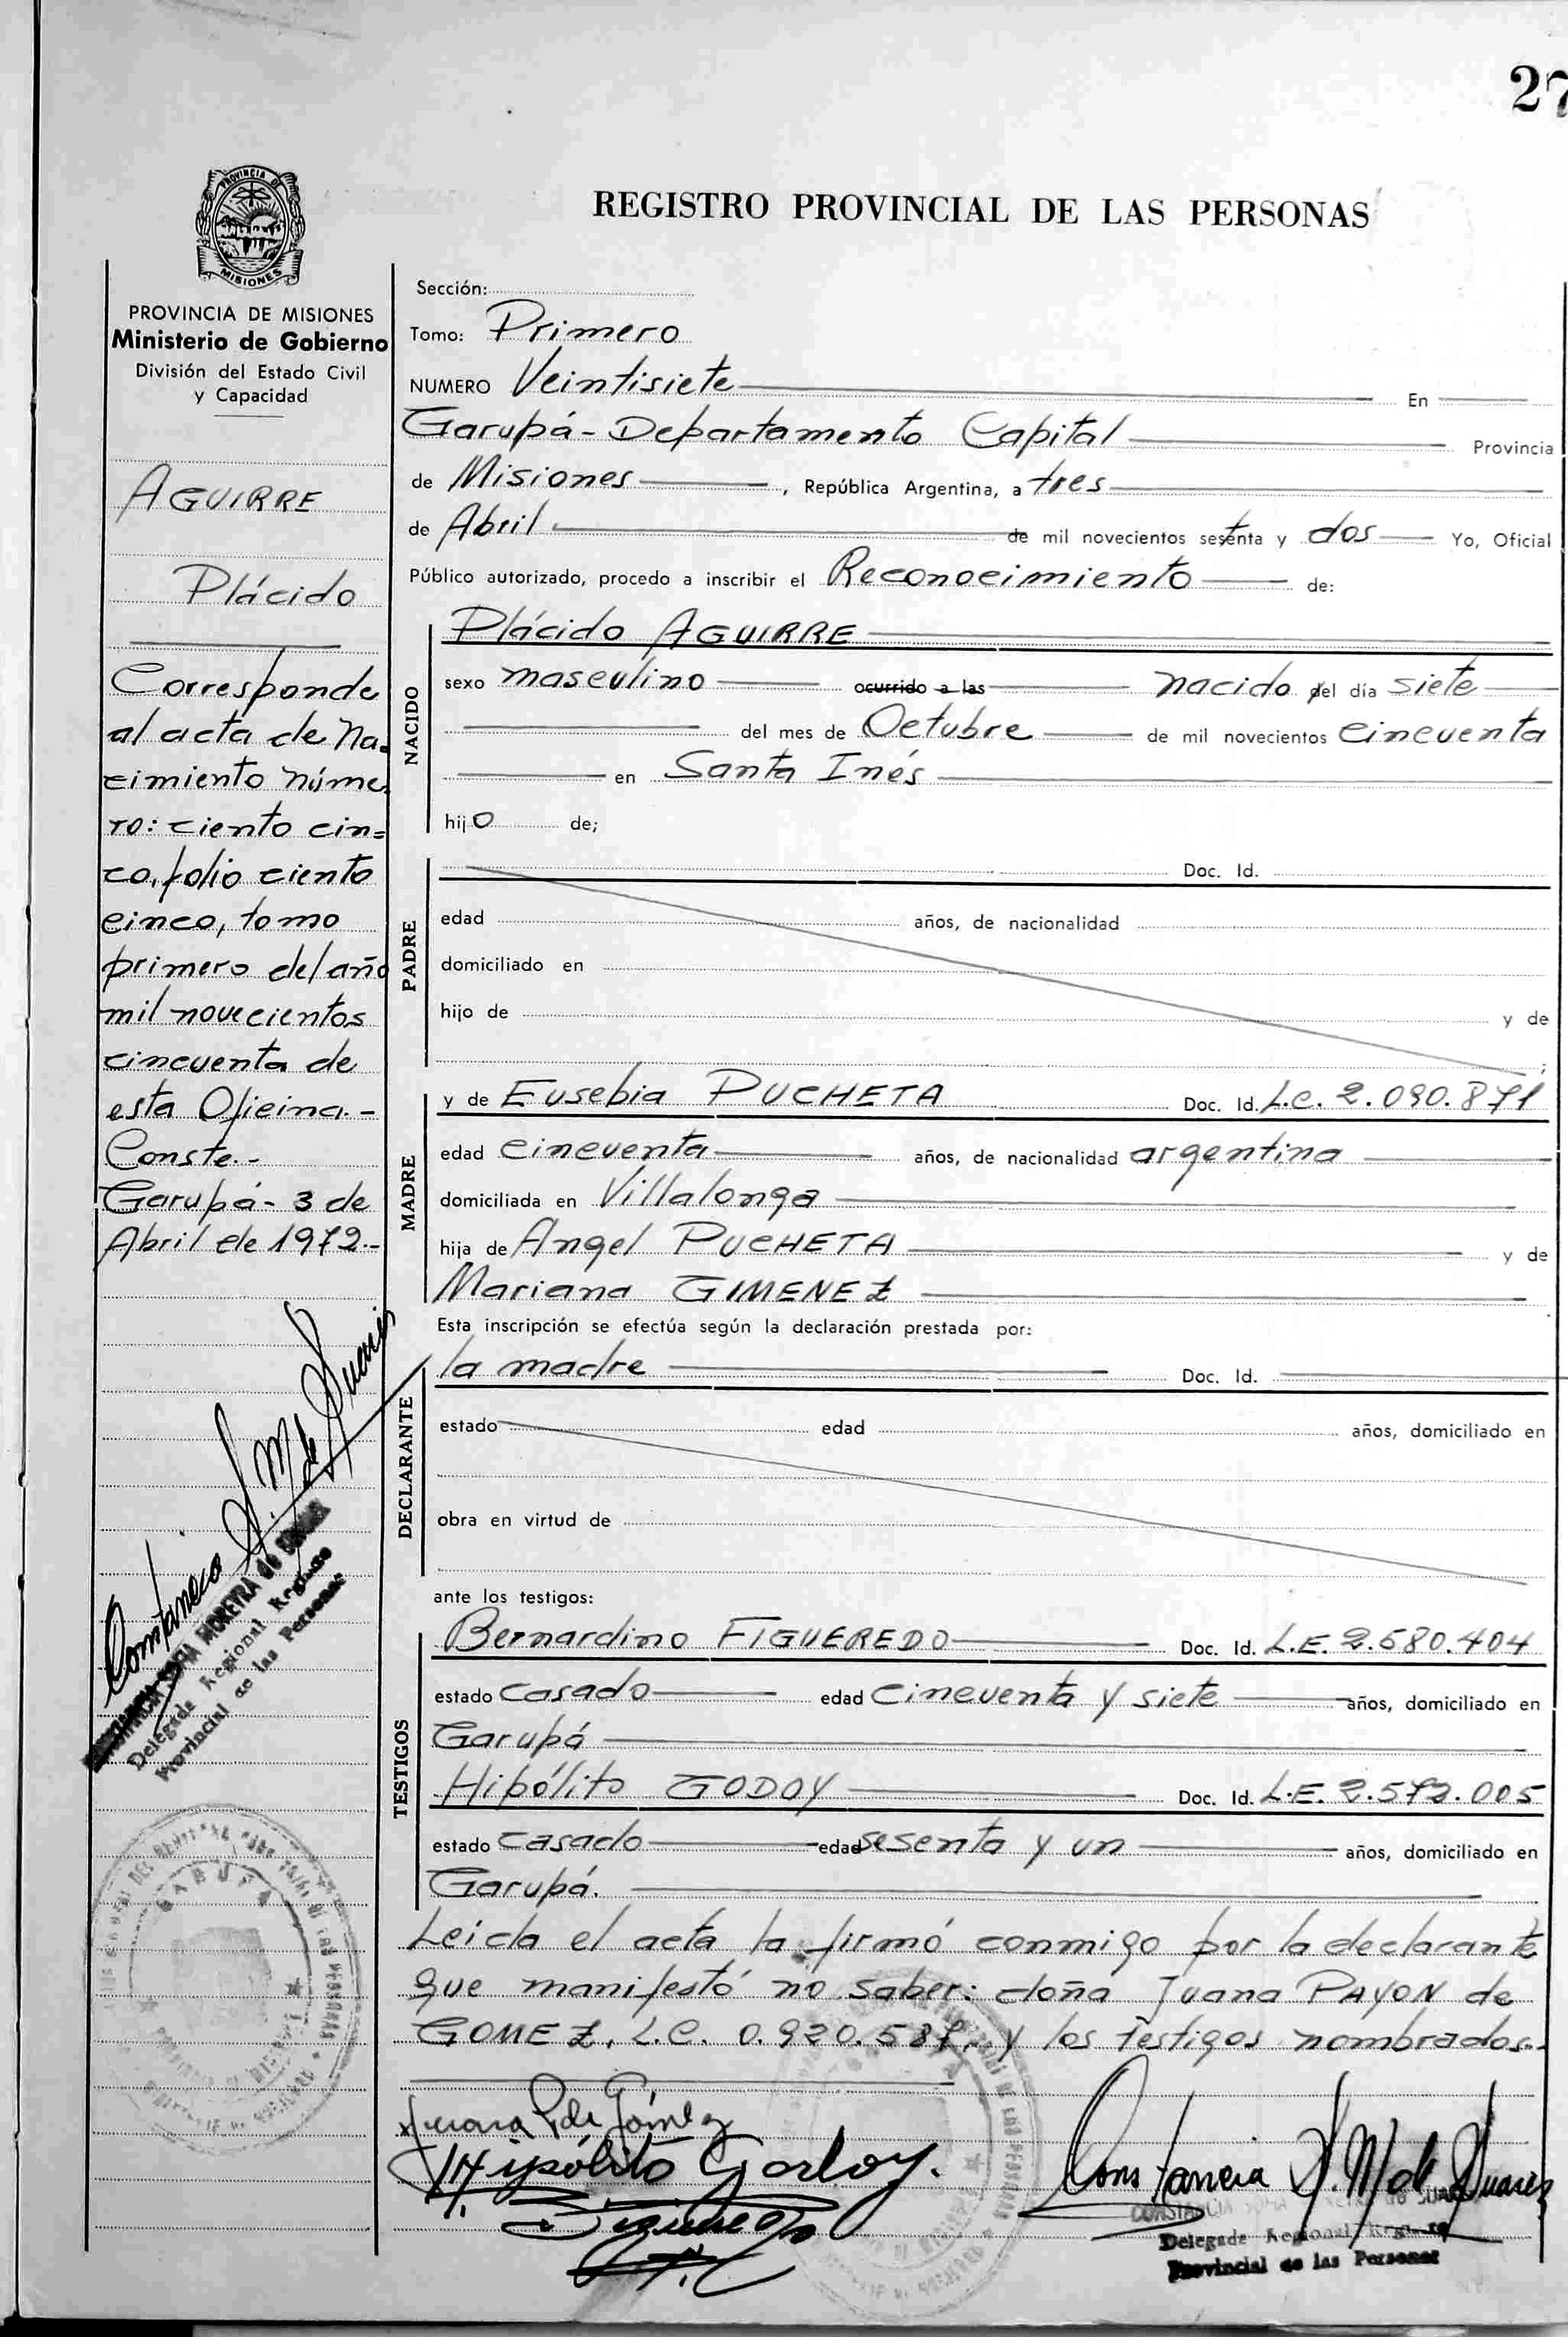 27
PROVINCIA DE
MISIONES
REGISTRO PROVINCIAL DE LAS PERSONAS
PROVINCIA DE MISIONES
Ministerio de Gobierno
División del Estado Civil
y Capacidad
AGUIRRE
Plácido
Corresponde
al acta de Na-
cimiento núme-
ro: ciento cin=
co, folio ciento
cinco, tomo
primero del año
mil novecientos
cincuenta de
esta Oficina.-
Conste.-
Garupá- 3 de
Abril de 1972.-
Constancia S. M de Suarez
CONSTANCIA SOFIA MOREYRA de SUAREZ
Delegada Regional Registro
Provincial de las Personas
GARUPA
Sección:
Tomo: Primero
NUMERO Veintisiete En
Garupá- Departamento Capital Provincia
de Misiones , República Argentina, a tres
de Abril de mil novecientos setenta y dos Yo, Oficial
Público autorizado, procedo a inscribir el Reconocimiento de:
NACIDO
Plácido AGUIRRE
sexo masculino ocurrido a las nacido del día siete
del mes de Octubre de mil novecientos cincuenta
en Santa Inés
hijo de;
PADRE
Doc. Id.
edad años, de nacionalidad
domiciliado en
hijo de y de
;
MADRE
y de Eusebia PUCHETA Doc. Id. L.C. 2.090.871
edad cincuenta años, de nacionalidad argentina
domiciliada en Villalonga
hija de Angel PUCHETA y de
Mariana GIMENEZ
Esta inscripción se efectúa según la declaración prestada por:
DECLARANTE
la madre Doc. Id.
estado edad años, domiciliado en
obra en virtud de
ante los testigos:
TESTIGOS
Bernardino FIGUEREDO Doc. Id. L.E. 2.580.404
estado casado edad cincuenta y siete años, domiciliado en
Garupá
Hipólito GODOY Doc. Id. L.E. 2.572.005
estado casado edad sesenta y un años, domiciliado en
Garupá.
Leida el acta la firmó conmigo por la declarante
que manifestó no saber: doña Juana PAYON de
GOMEZ, L.C. 0.920.587, y los testigos nombrados.-
Juana P de Gómez
Hipólito Godoy.
Constancia S. M de Suarez
Delegada Regional Registro
Provincial de las Personas